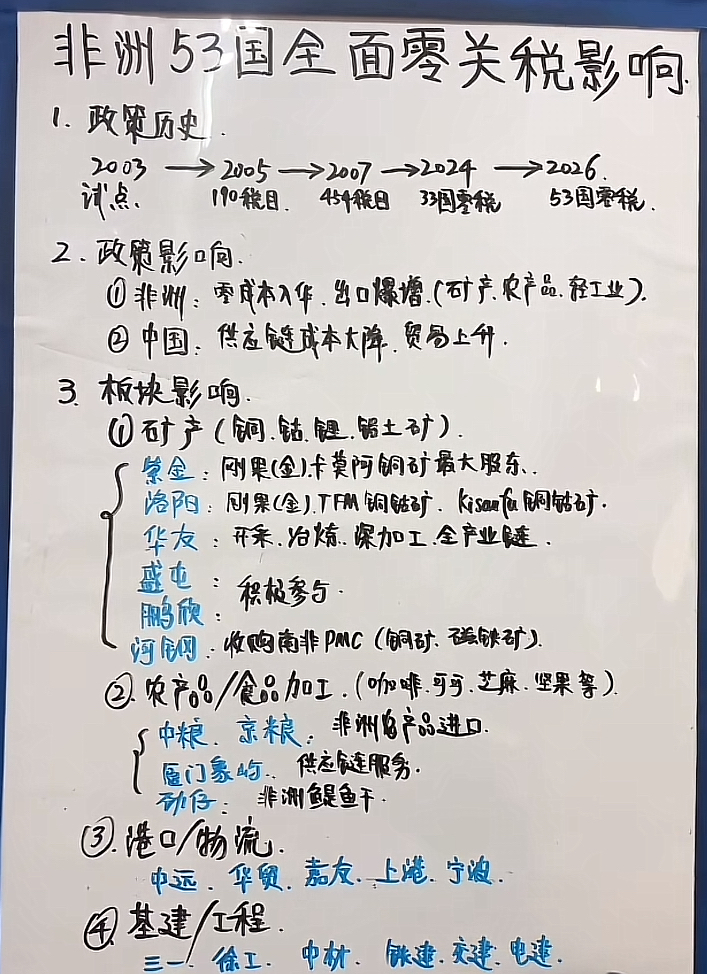 非洲53国全面零关税影响.
1. 政策历史.
2003 → 2005 → 2007 → 2024 → 2026.
试点. 190税目. 454税目 33国零税 53国零税.
2. 政策影响.
① 非洲: 零成本入华. 出口爆增.(矿产.农产品.轻工业).
② 中国: 供应链成本大降. 贸易上升.
3. 板块影响.
① 矿产(铜.钴.锂.铝土矿).
紫金: 刚果(金).卡莫阿铜矿最大股东.
洛阳: 刚果(金).TFM铜钴矿. Kisanfu铜钴矿.
华友: 开采.冶炼.深加工.全产业链.
盛屯:
积极参与.
鹏欣:
河钢. 收购南非PMC(铜矿.磁铁矿).
②. 农产品/食品加工.(咖啡.可可.芝麻.坚果等).
中粮. 京粮: 非洲农产品进口.
厦门象屿. 供应链服务.
劲仔: 非洲鳀鱼干.
③. 港口/物流.
中远. 华贸. 嘉友. 上港. 宁波.
④. 基建/工程.
三一. 徐工. 中材. 铁建. 交建. 电建.